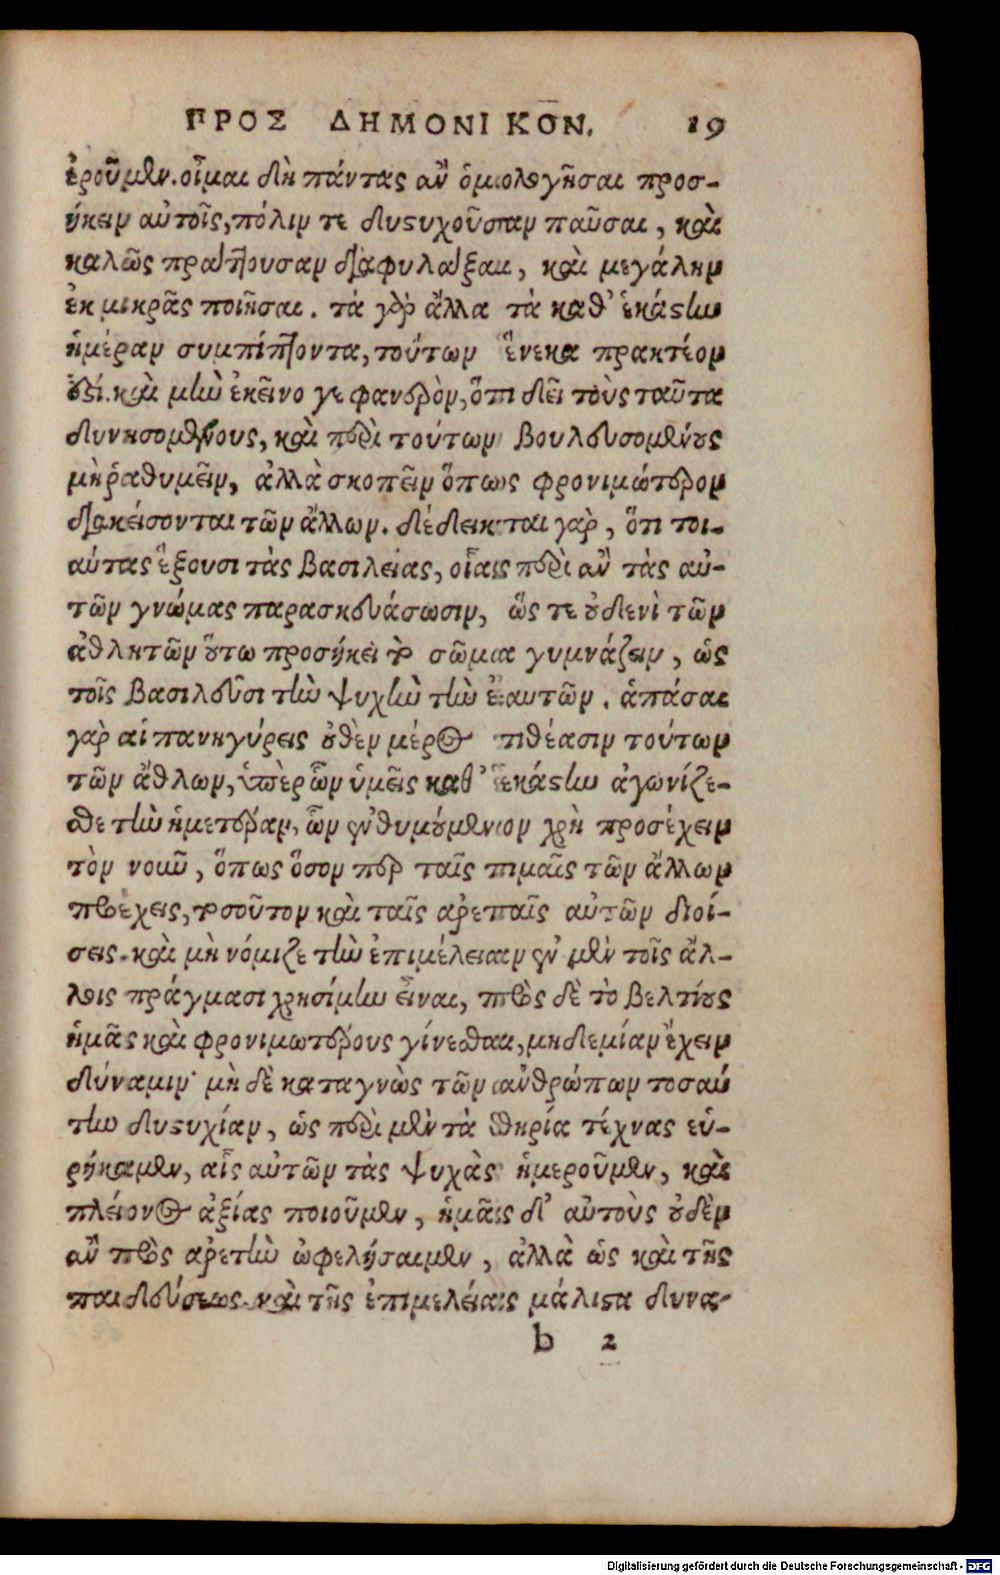 ΠΡΟΣ ΔΗΜΟΝΙΚΟΝ. 19
ἐροῦμεν. οἶμαι δὴ πάντας ἂν ὁμολογῆσαι προσ-
ήκειν αὐτοῖς, πόλιν τε δυστυχοῦσαν παῦσαι, καὶ
καλῶς πράττουσαν διαφυλάξαι, καὶ μεγάλην
ἐκ μικρᾶς ποιῆσαι. τὰ γὰρ ἄλλα τὰ καθ' ἑκάστην
ἡμέραν συμπίπτοντα, τούτων ἕνεκα πρακτέον
ἐστί. καὶ μὴν ἐκεῖνο γε φανερὸν, ὅτι δεῖ τοὺς ταῦτα
δυνησομένους, καὶ περὶ τούτων βουλευσομένους
μὴ ῥαθυμεῖν, ἀλλὰ σκοπεῖν ὅπως φρονιμώτερον
διακείσονται τῶν ἄλλων. δέδεικται γὰρ, ὅτι τοι-
αύτας ἕξουσι τὰς βασιλείας, οἵαις περὶ ἂν τὰς αὑ-
τῶν γνώμας παρασκευάσωσιν, ὥς τε οὐδενὶ τῶν
ἀθλητῶν οὕτω προσήκει τὸ σῶμα γυμνάζειν, ὡς
τοῖς βασιλεῦσι τὴν ψυχὴν τὴν ἑαυτῶν. ἁπάσαι
γὰρ αἱ πανηγύρεις οὐθὲν μέρος τιθέασιν τούτων
τῶν ἄθλων, ὑπὲρ ὧν ὑμεῖς καθ' ἑκάστην ἀγωνίζε-
σθε τὴν ἡμετέραν, ὧν ἐνθυμούμενον χρὴ προσέχειν
τὸν νοῦν, ὅπως ὅσον περ ταῖς τιμαῖς τῶν ἄλλων
προέχεις, τοσοῦτον καὶ ταῖς ἀρεταῖς αὐτῶν διοί-
σεις. καὶ μὴ νόμιζε τὴν ἐπιμέλειαν ἐν μὲν τοῖς ἄλ-
λοις πράγμασι χρησίμην εἶναι, πρὸς δὲ τὸ βελτίους
ἡμᾶς καὶ φρονιμωτέρους γίνεσθαι, μηδεμίαν ἔχειν
δύναμιν· μὴ δὲ καταγνὼς τῶν ἀνθρώπων τοσαύ
την δυστυχίαν, ὡς περὶ μὲν τὰ θηρία τέχνας εὑ-
ρήκαμεν, αἷς αὐτῶν τὰς ψυχὰς ἡμεροῦμεν, καὶ
πλείονος ἀξίας ποιοῦμεν, ἡμᾶς δ' αὐτοὺς οὐδὲν
ἂν πρὸς ἀρετὴν ὠφελήσαιμεν, ἀλλὰ ὡς καὶ τῆς
παιδεύσεως καὶ τῆς ἐπιμελείας μάλιστα δυνα-
b 2
Digitalisierung gefördert durch die Deutsche Forschungsgemeinschaft - DFG